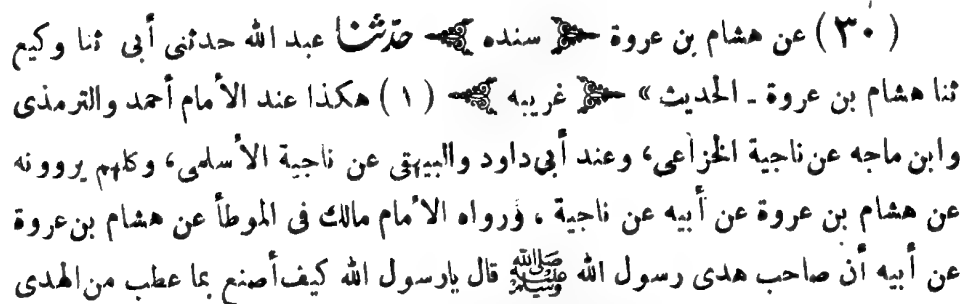 (٣٠) عن هشام بن عروة ﴿ سنده ﴾ حدّثنا عبد الله حدثنى أبى ثنا وكيع
ثنا هشام بن عروة ـ الحديث » ﴿ غريبه ﴾ (١) هكذا عند الأمام أحمد والترمذى
وابن ماجه عن ناجية الخزاعى، وعند أبى داود والبيهقى عن ناجية الأسلمى، وكلهم يروونه
عن هشام بن عروة عن أبيه عن ناجية ، ورواه الأمام مالك فى الموطأ عن هشام بن عروة
عن أبيه أن صاحب هدى رسول الله ﷺ قال يارسول الله كيف أصنع بما عطب من الهدى